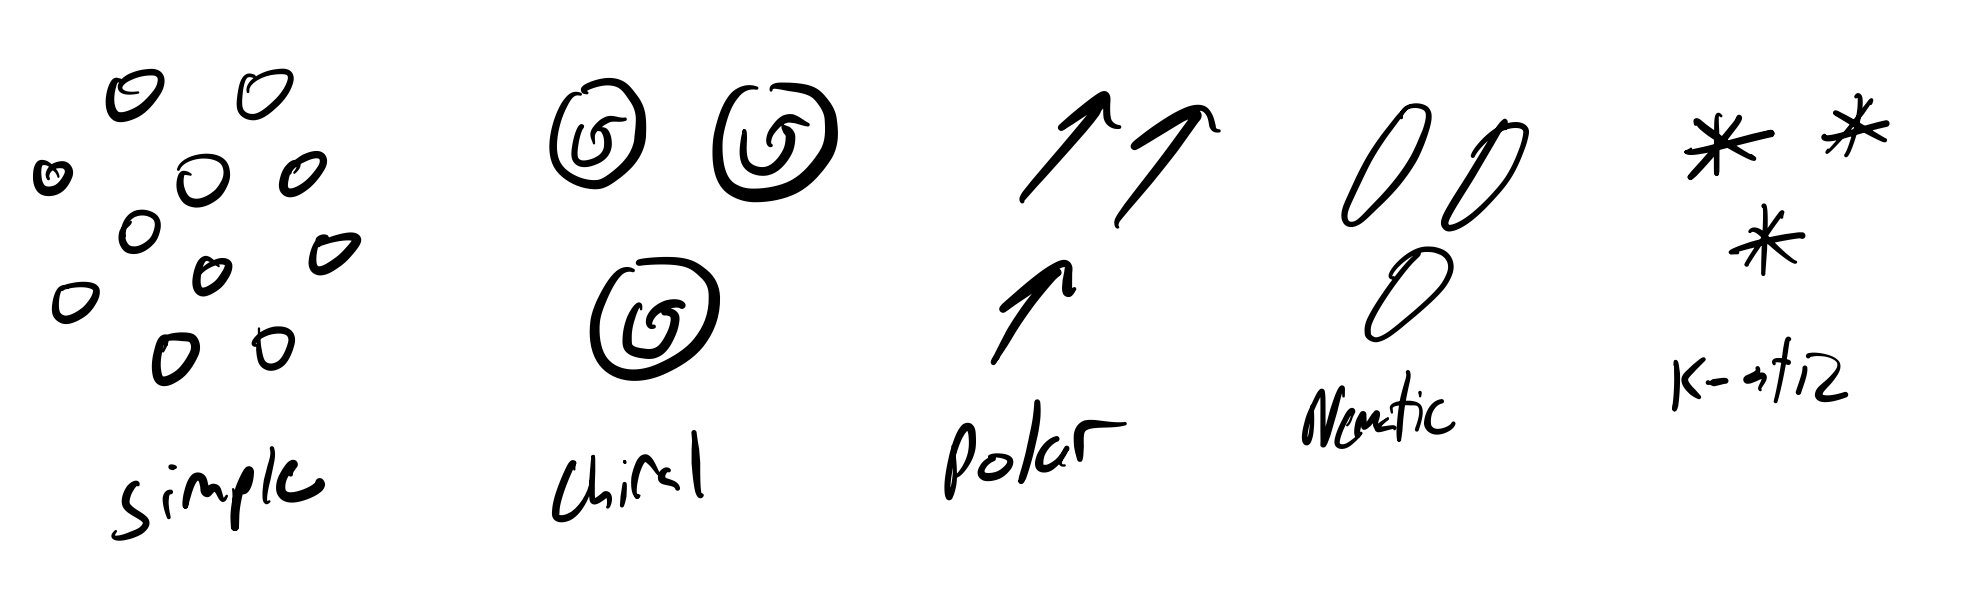 simple
chiral
Polar
Nematic
K-atic